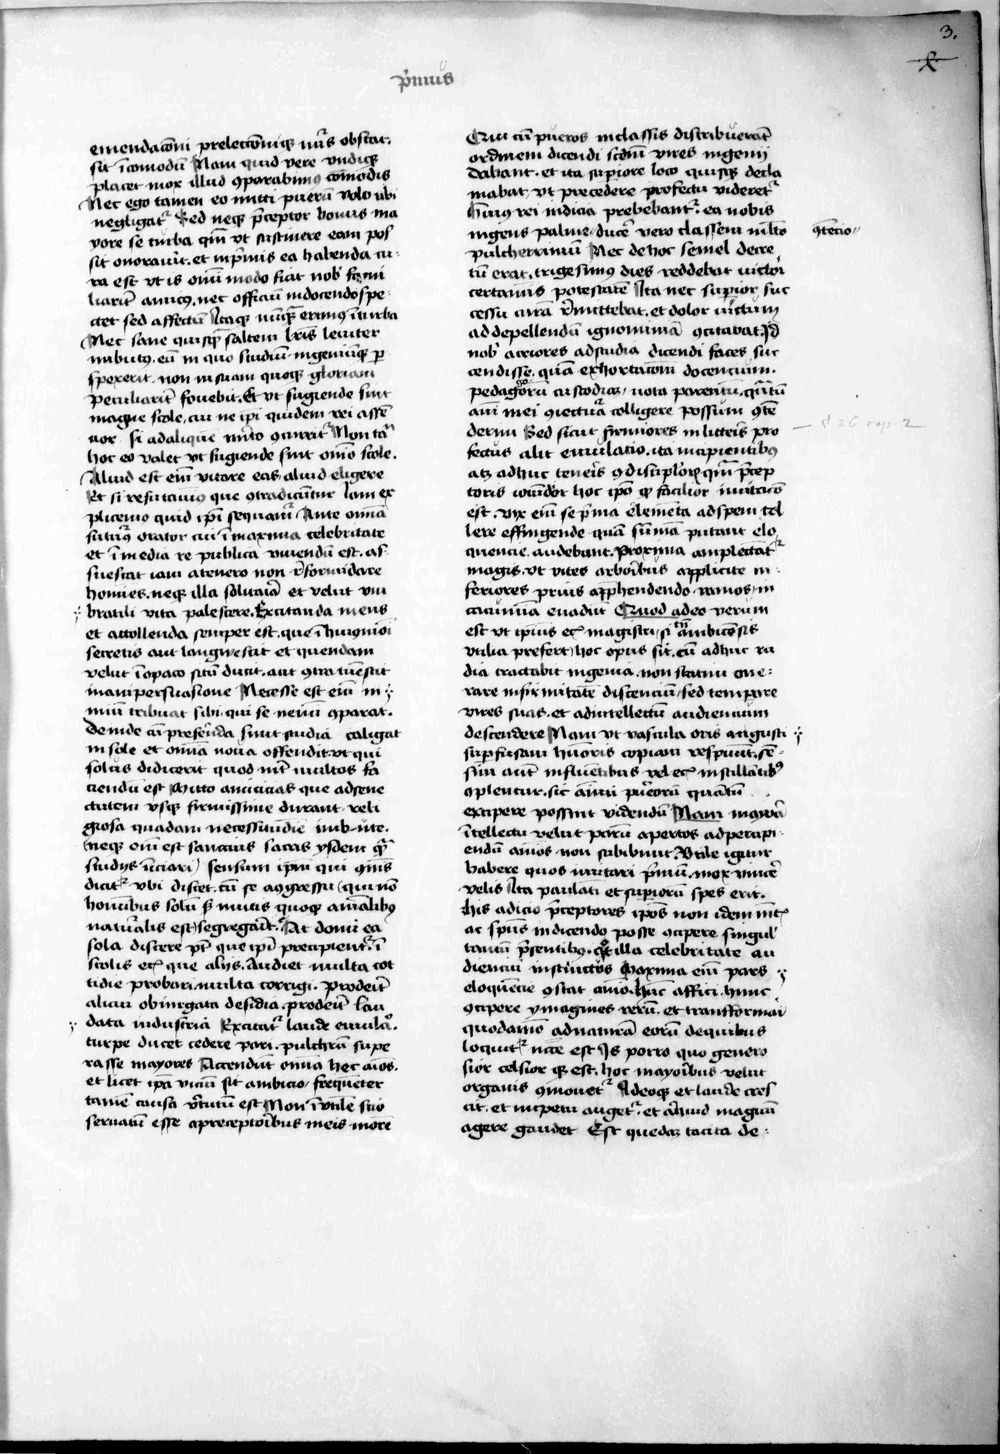 3.
p̄mus
emendac̄oni prelecc̄oniqꝫ n̄ris obstat.
sit īcomodū Nam quid vere vndiqꝫ
placet mox illud ꝯparabimꝰ cōmodis
Nec ego tamen eo mitti puerū volo ubi
negligat᷑ Sed neqꝫ p̄ceptor bonus ma
yore se turba qm̄ vt sustinere eam pos
sit onorauit. et inp̄mis ea habenda cu
ra est vt is om̄i modo fiat nob̄ fami
liarit̄ amicꝰ. nec officiū indocendo spe
ctet sed affectū Itaqꝫ nūqꝫ erimꝰ ī turba
Nec sane quisqꝫ saltem lr̄is leuiter
imbutꝰ. eū in quo studiū ingeniūqꝫ p̲
spexerit. non in suam quoqꝫ gloriam
peculiarit̄ fouebit. Et vt fugiende sint
magne scole, cui ne ip̄i quidem rei assē
tior si ad alique m̄ito ꝯcurrit᷑ Non tn̄
hoc eo valet vt fugiende sint om̄o scole.
Aliud est em̄ vitare eas aliud eligere
Et si refutauimꝰ que ꝯtradicūtur Iam ex
plicemꝰ quid ip̄i sequam᷑ Ante om̄ia
futurꝰ orator cui ī maxima celebritate
et ī media re publica viuendū est. as
suescat iam a tenero non r̄formidare
homīes. neqꝫ illa solitaīa et velut vm
bratili vita palescere. Excitanda mens
et attollenda semper est. que ī huiꝰmōi
secretis aut languescit et quendam
velut ī opaco sitū ducit. aut ꝯtra tumescit
inani persuasione Necesse est em̄ ni
miū tribuat sibi qui se nemī ꝯparat.
Deinde cū prefer̄da sint studia caligat
in sole et om̄ia noua offendit. vt qui
solus didicerit quod int̄ multos fa
ciendū est Mitto amicicias que ad sene
ctutem vsqꝫ firmissime durant reli
giosa quadam necessitudīe imbute.
neqꝫ em̄ est sanctius sacris ysdem qꝫ
studiis īiciari Sensum ip̄m qui ꝯmīs
dicit᷑ vbi discet. cū se a ꝯgressu qui nō
hominibus solū s̄ mutis quoqꝫ aīalibꝰ
naturalis est segregar̄it᷑. At domi ea
sola discere pt̄ que ip̄i precipient᷑. ī
scolis eciā que aliis. Audiet multa cot
tidie probari. multa corrigi. proderit
alicui obiurgata desidia. proderit lau
data industria Excitat᷑ laude emulaō.
turpe ducet cedere pari. pulchrū supe
rasse mayores Accendūt om̄ia hec aīos.
et licet ip̄a viciū sit ambicio / frequēter
tamē causa v̄tutum est Non īvtile scio
seruatū esse a preceptoribus meis morē
Qui cū pueros in classis distribuerāt
ordinem dicendi scd̄m vires ingenij
dabant. et ita supiore loco quisqꝫ decla
mabat vt precedere profectu videret᷑
Huiꝰ rei indicia prebebant᷑. ea nobis
ingens palme / ducē vero classem m̄lto
pulcherrimū Nec de hoc semel decre
tū erat. trigesimꝰ dies reddebat victoi
certaminis potestatē Ita nec supior suc
cessu curā r̄mittebat. et dolor victum
ad depellendū ignominiā ꝯcitabat. Id
nob̄ acriores ad studia dicendi faces suc
cendisse. quā exhortacōm docencium.
pedagogorū custodiaꝫ / uota parentū, qn̄tū
aīmi mei ꝯiectura colligere possum ꝯtē
derim Sed sicut firmiores in litteris pro
fectus alit emulacio. ita incipientibꝰ
atꝫ adhuc teneris ꝯdiscipl̄orꝫ qm̄ p̄cep
toris iocūdior hoc ip̄o qꝫ facilior imitacō
est. vix em̄ se p̄ma elemēta ad spem tol
lere effingende quā sūmā putant elo
quencie. audebunt. Proxima amplectāt᷑
magis. vt vites arboribus applicite in
feriores prius apprehendendo ramos / in
cacumīa euadūt Quod adeo verum
est vt ipsius eciā magistri / si tn̄ ambiciosis
vtilia prefert hoc opus sit. cū adhuc ru
dia tractabit ingenia. non statim one
rare infirmitatē discentiū / sed temperare
vires suas. et ad intellectū audiencium
descendere Nam vt vascula oris angusti
supfusam humoris copiam respuunt. sen
sim autē influentibus vel eciā instillatibꝰ
ꝯplentur. sic animi puerorū quātū
excipere possint videndū Nam mayora
ītellectu velut parū apertos ad percipi
endū aīmos non subibunt. Vtile igitur
habere quos imitari p̄mū. mox vincere
velis Ita paulati et supiorū spes erit.
His adicio p̄ceptores ip̄os non idem mēt᷑
ac sp̄us in dicendo posse ꝯcipere singul̄
tantū p̄sentibꝰ. qꝫ illa celebritate au
diencium instinctos Maxima em̄ pars
eloquēcie ꝯstat aīmo. hūc affici. hunc
ꝯcipere ymagines rerū. et transformari
quodāmo ad naturā eorū de quibus
loquit᷑ ncc̄e est Is porro quo genero
sior celsior qꝫ est. hoc mayoribus velut
organis ꝯmouet᷑ Adeoqꝫ et laude cres
cit. et impetu auget᷑. et aliquid magnū
agere gaudet Est quedaꝫ tacita de